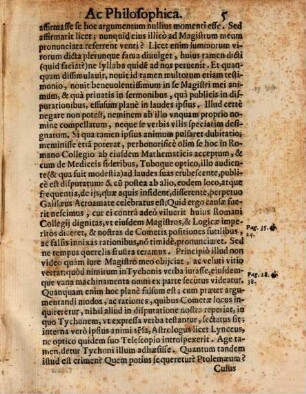 Ac Philosophica. 5
affirmasse se hoc argumentum nullius momenti esse. Sed
affirmarit licet; nunquid eius illico ad Magistrum meum
pronunciata referrent venti? Licet enim summorum vi-
rorum dicta plerunque fama divulget, huius tamen dicti
(quid faciat?) ne syllaba quidẽ ad nos pervenit. Et quan-
quam dissimulavit, novit id tamen multorum etiam testi-
monio, novit benevolentissimum in se Magistri mei ani-
mum, & quà privatis in sermonibus, quà publicis in dis-
putationibus, effusum planè in laudes ipsius. Illud certè
negare non potest, neminem ab illo unquam proprio no-
mine compellatum, neque se verbis ullis specialim desi-
gnatum. Si qua tamen ipsius animum pulsaret dubitatio;
meminisse etiã poterat, perhonorificè olim se hoc in
Romano Collegio ab eiusdem Mathematicis acceptum, &
cum de Mediceis sideribus, Tuboque optico, illo audien-
te (& qua fuit modestia) ad laudes suas erubescente, publi-
cè est disputatum & cũ postea ab alio, eodem loco, atque
frequentia, de ijs, quæ aquis insident, disserente, perpetuo
Galilæus Acroamate celebratus est. Quid ergo causæ fue-
rit nescimus, cur ei contrà adeò viluerit huius Romani
Collegij dignitas, vt eiusdem Magistros, & Logicæ impe-
ritos diceret, & nostras de Cometis positiones futilibus, Pag. 15.
ac falsis innixas rationibus, nõ timidè, pronunciaret. Sed
ne tempus querelis frustra teramus. Principiò illud non
video quàm iure Magistro meo obijciat, ac veluti vitio
vertat; quòd nimirum in Tychonis verba iurasse, eiusdem-
que vana machinamenta omni ex parte secutus videatur. Pag. 18. &
Quanquam enim hoc planè falsum est; cum præter argu- 38.
mentandi modos, ac rationes, quibus Cometæ locus in-
quireretur, nihil aliud in disputatione nostra reperiat, in
quo Tychonem, vt expressa verba testantur, sectatus sit;
interna verò ipsius animi sensa, Astrologus licet Lynceus,
ne optico quidem suo Telescopio introspexerit. Age ta-
men, detur Tychoni illum adhæsisse. Quantum tandem
istud est crimen? Quem potius sequeretur? Ptolemæum?
Cuius